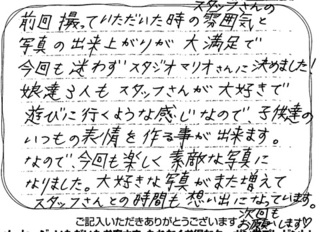 スタッフさんの
前回撮っていただいた時の雰囲気と
写真の出来上がりが大満足で
今回も迷わずスタジオマリオさんに決めました!
娘達3人もスタッフさんが大好きで
遊びに行くような感じなので、子供達の
いつもの表情を作る事が出来ます。
なので、今回も楽しく素敵な写真に
なりました。大好きな写真がまた増えて
スタッフさんとの時間も想い出になっています。
次回も
お願いします♡
ご記入いただきありがとうございます